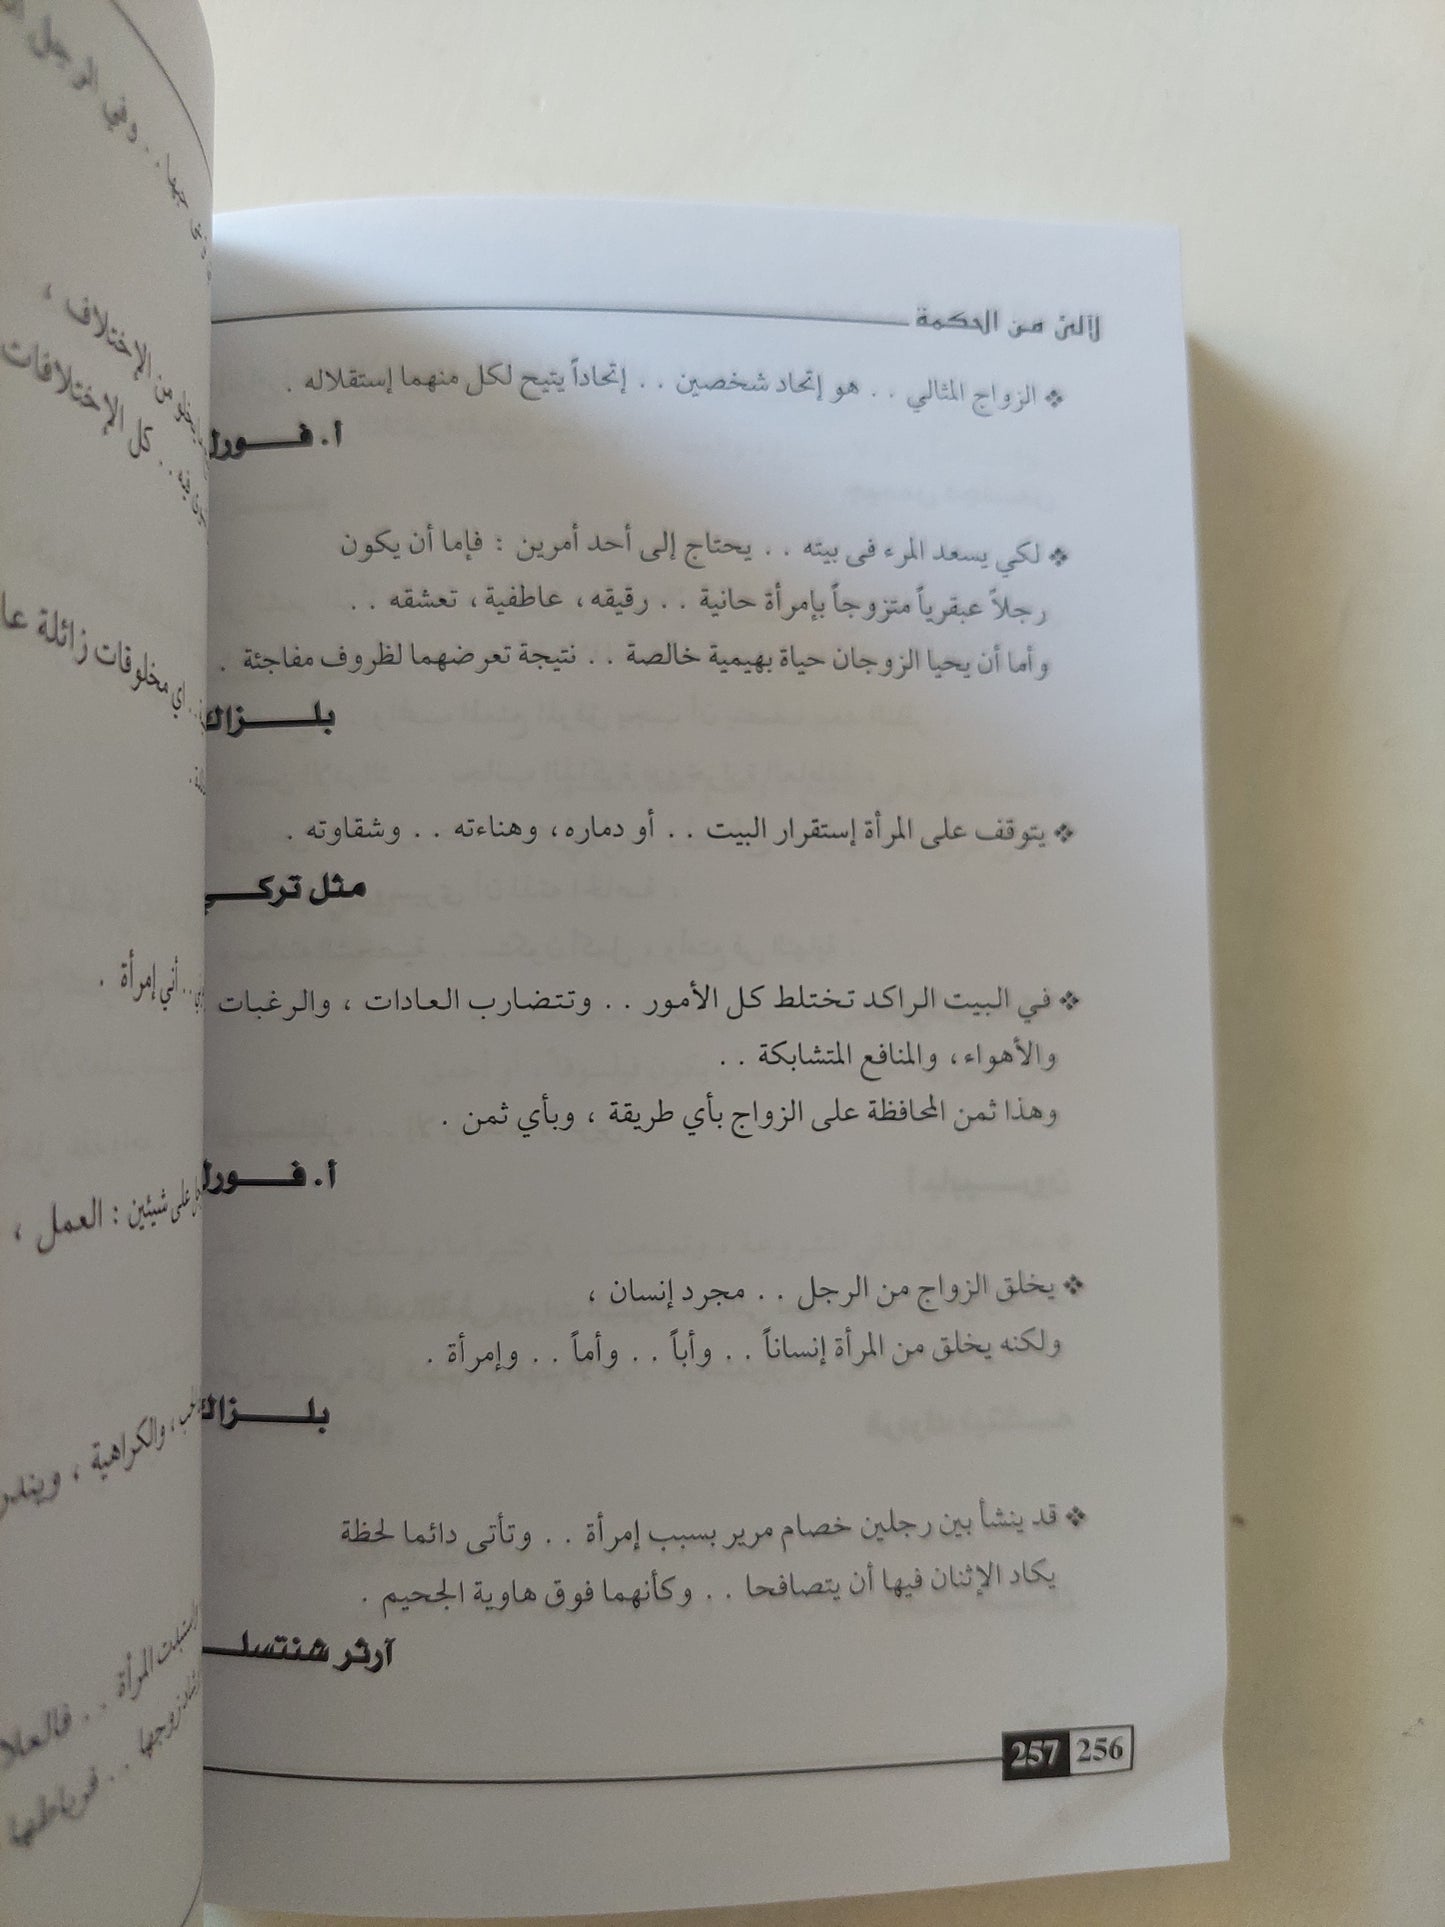 لآلئ من الحكمة
❖ الزواج المثالي . . هو إتحاد شخصين . . إتحاداً يتيح لكل منهما إستقلاله .
أ. فـــورل
❖ لكي يسعد المرء فى بيته . . يحتاج إلى أحد أمرين : فإما أن يكون
رجلاً عبقرياً متزوجاً بإمرأة حانية . . رقيقه، عاطفية، تعشقه . .
وأما أن يحيا الزوجان حياة بهيمية خالصة . . نتيجة تعرضهما لظروف مفاجئة .
بلـــزاك
❖ يتوقف على المرأة إستقرار البيت . . أو دماره، وهناءته . . وشقاوته .
مثل تركـي
❖ في البيت الراكد تختلط كل الأمور . . وتتضارب العادات ، والرغبات
والأهواء، والمنافع المتشابكة . .
وهذا ثمن المحافظة على الزواج بأي طريقة ، وبأي ثمن .
أ. فـــورل
❖ يخلق الزواج من الرجل . . مجرد إنسان ،
ولكنه يخلق من المرأة إنساناً . . وأباً . . وأماً . . وإمرأة .
بلـــزاك
❖ قد ينشأ بين رجلين خصام مرير بسبب إمرأة . . وتأتى دائما لحظة
يكاد الإثنان فيها أن يتصافحا . . وكأنهما فوق هاوية الجحيم .
آرثر شنتسلـ
257 256
وفي الرجل
من الإختلاف ،
. . كل الإختلافات
. . اي مخلوقات زائلة
. . أني إمرأة .
على شيئين : العمل ،
، والكراهية ،
المرأة . .
زوجها . .